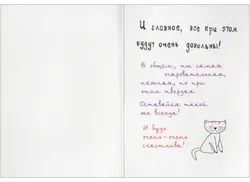 И главное, все при этом
будут очень довольны!
В общем, ты самая
очаровательная,
нежная, но при
этом твердая.
Оставайся такой
же всегда!
И будь
очень-очень
счастлива!